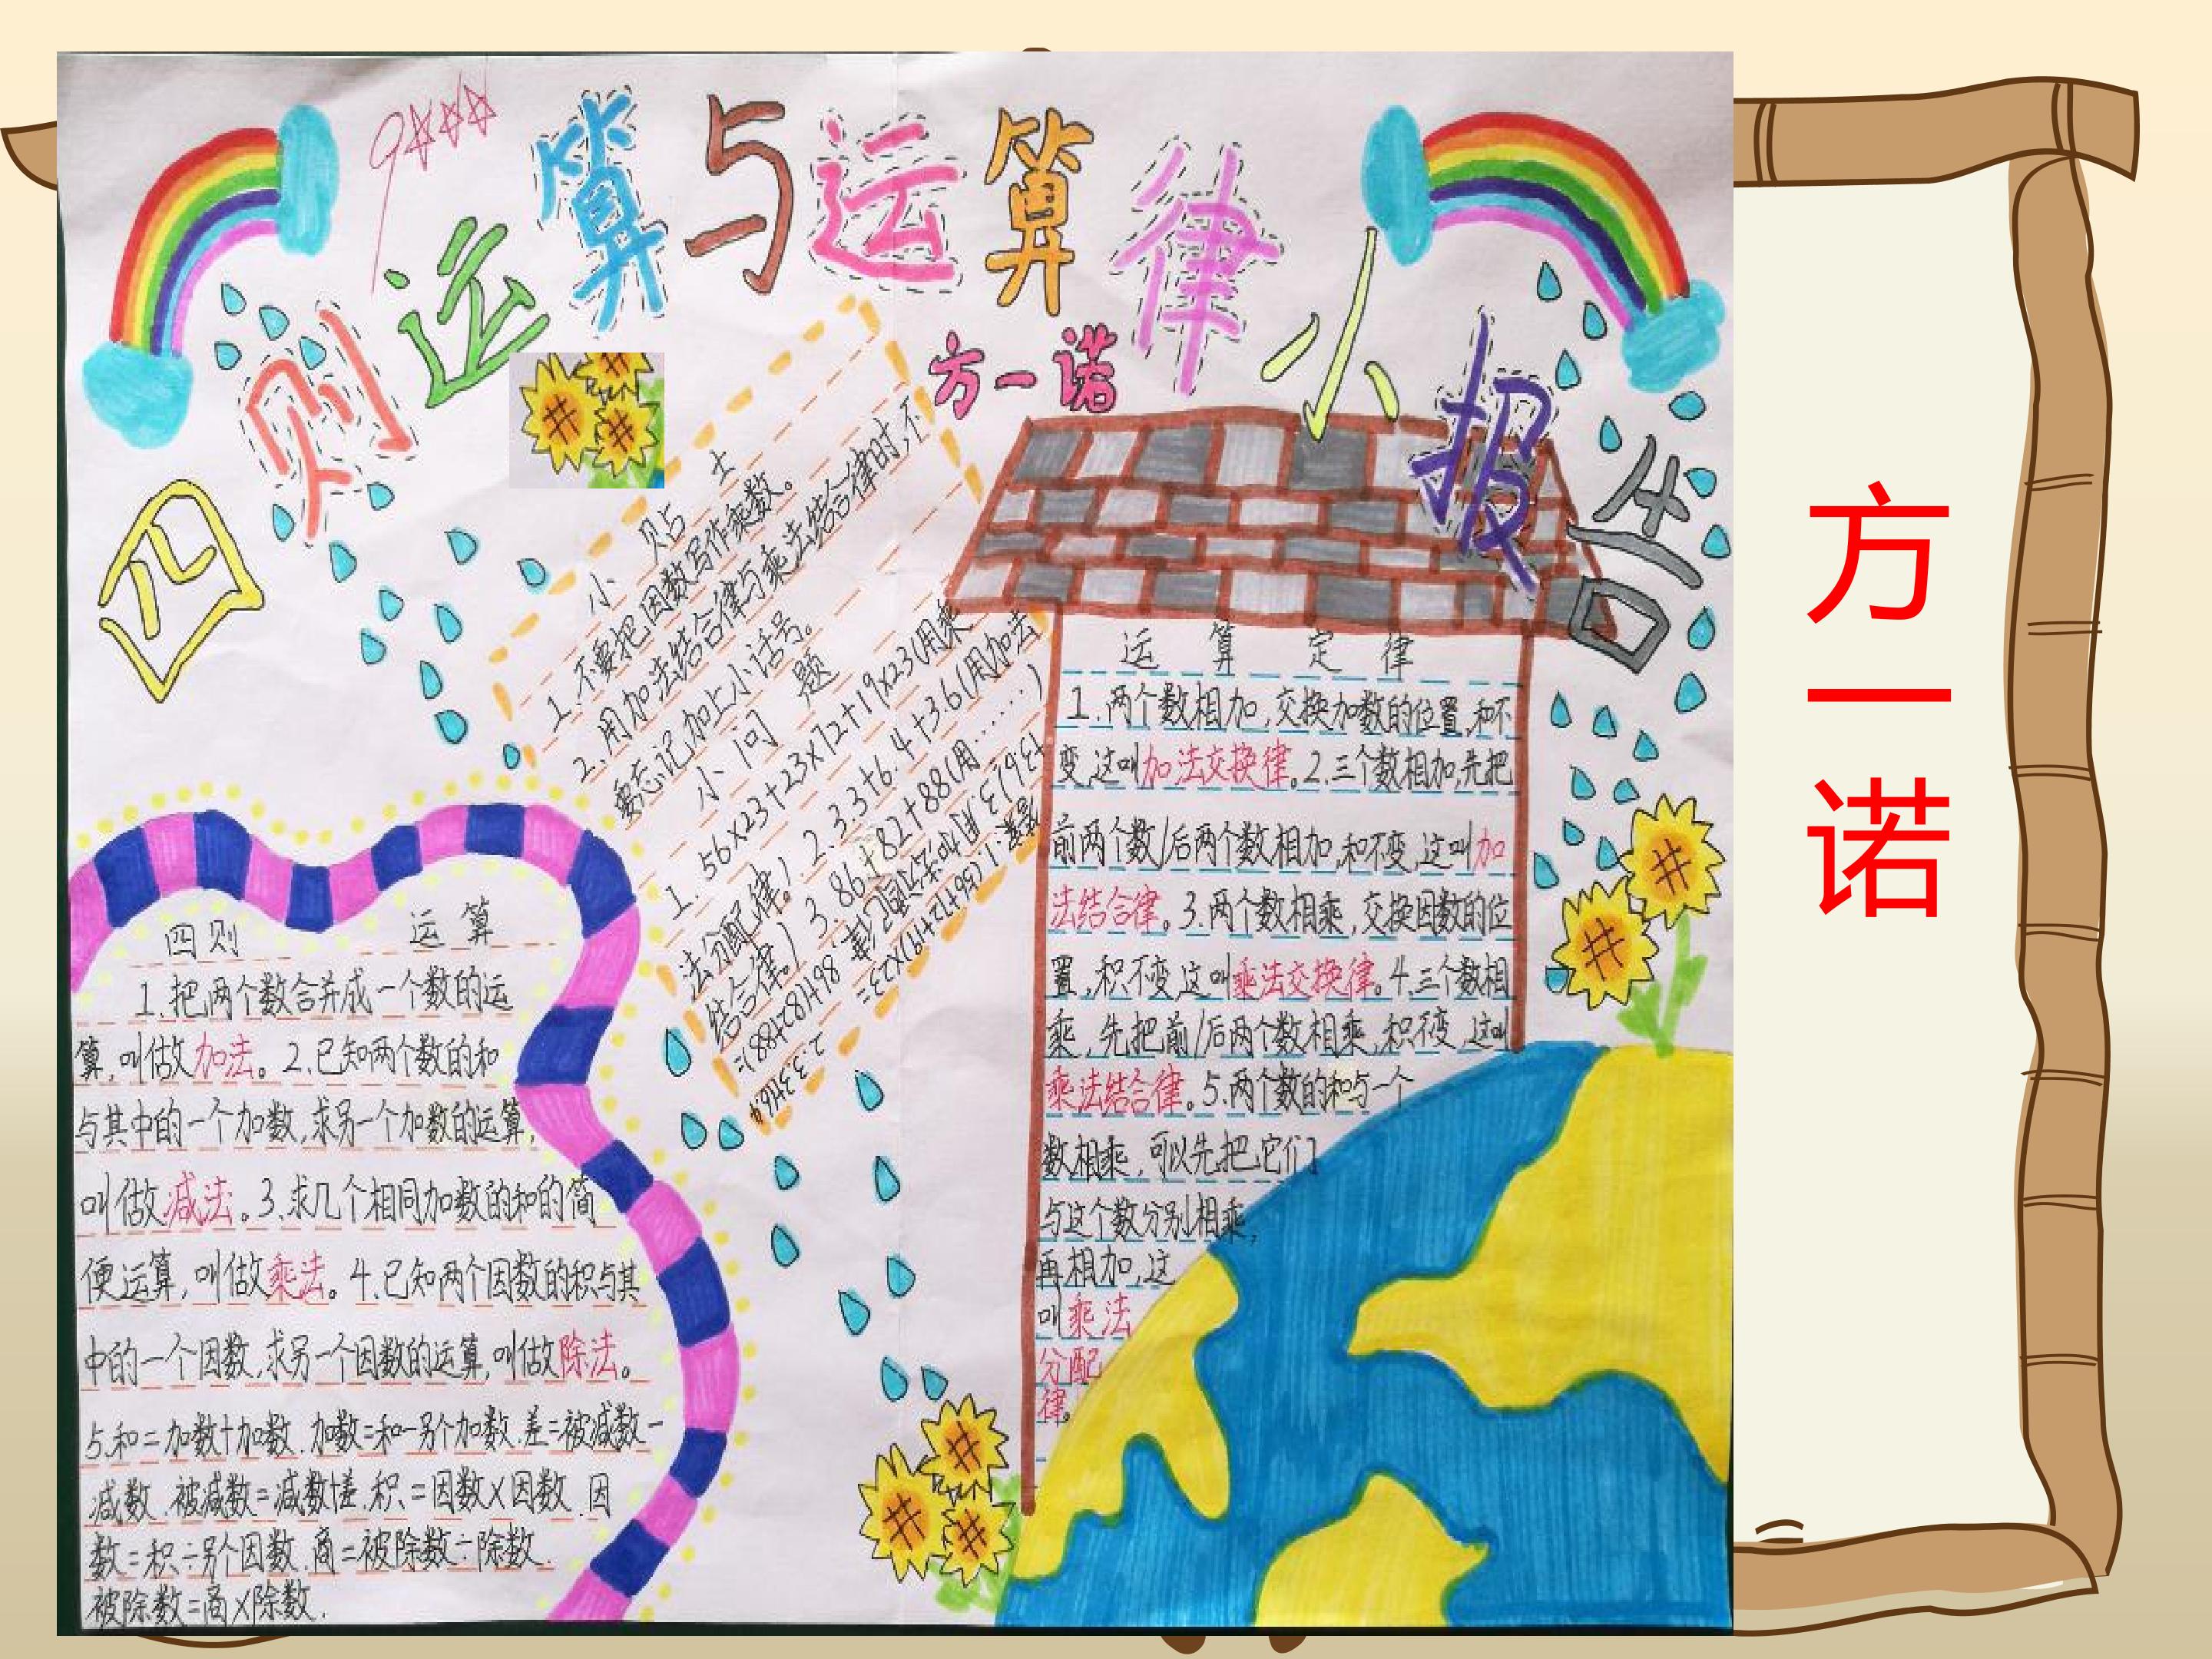 四则运算与运算律小报告
方一诺
小贴士
1.不要把因数写作乘数。
2.用加法结合律与乘法结合律时,不
要忘记加上小括号。
小问题
1. 56×23+23×72+19×23(用乘
法分配律) 2. 3.3+6.4+3.6(用加法
结合律) 3. 86+82+88(用……)
运算定律
1.两个数相加,交换加数的位置,和不
变,这叫加法交换律。2.三个数相加,先把
前两个数/后两个数相加,和不变,这叫加
法结合律。3.两个数相乘,交换因数的位
置,积不变,这叫乘法交换律。4.三个数相
乘,先把前/后两个数相乘,积不变,这叫
乘法结合律。5.两个数的和与一个
数相乘,可以先把它们
与这个数分别相乘,
再相加,这
叫乘法
分配
律。
四则运算
1.把两个数合并成一个数的运
算,叫做加法。2.已知两个数的和
与其中的一个加数,求另一个加数的运算,
叫做减法。3.求几个相同加数的和的简
便运算,叫做乘法。4.已知两个因数的积与其
中的一个因数,求另一个因数的运算,叫做除法。
5.和=加数+加数.加数=和-另个加数.差=被减数-
减数.被减数=减数+差.积=因数×因数.因
数=积÷另个因数.商=被除数÷除数.
被除数=商×除数.
方一诺